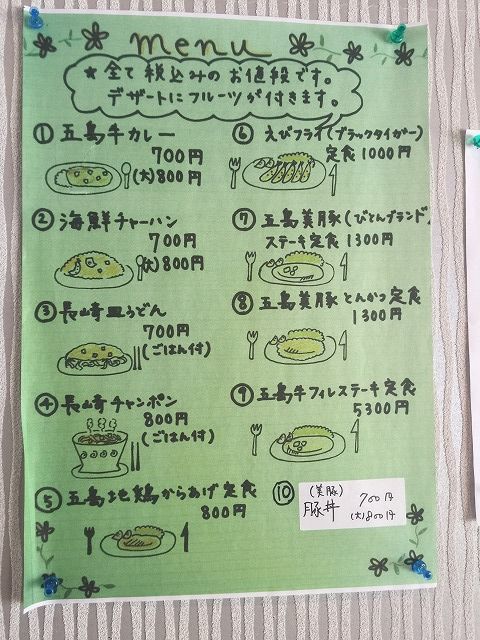 menu
★全て税込みのお値段です。
デザートにフルーツが付きます。
① 五島牛カレー
700円
(大)800円
② 海鮮チャーハン
700円
(大)800円
③ 長崎皿うどん
700円
(ごはん付)
④ 長崎チャンポン
800円
(ごはん付)
⑤ 五島地鶏からあげ定食
800円
⑥ えびフライ(ブラックタイガー)
定食1000円
⑦ 五島美豚(びとんブランド)
ステーキ定食1300円
⑧ 五島美豚とんかつ定食
1300円
⑨ 五島牛フィレステーキ定食
5300円
⑩ (美豚)
豚丼 700円
(大)800円